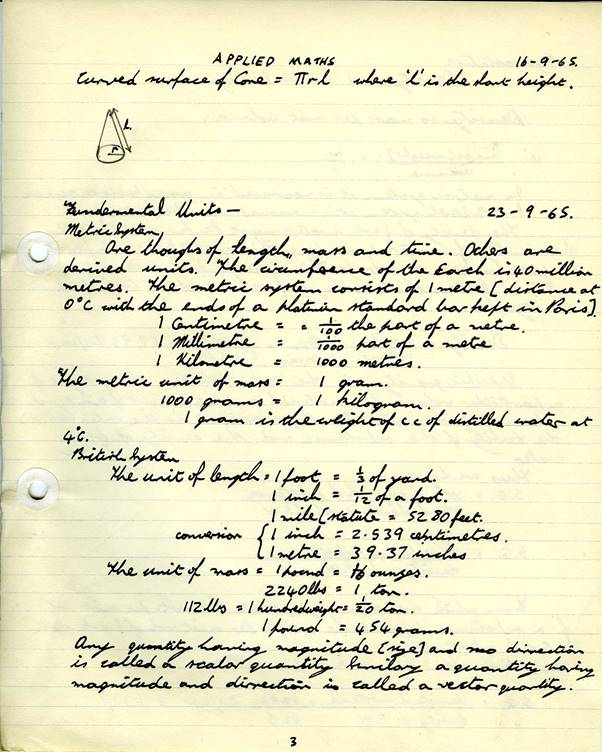 APPLIED MATHS 16-9-65.
Curved surface of Cone = πrl where 'l' is the slant height.
l.
r
Fundermental Units — 23-9-65.
Metric System,
Are thoughs of length, mass and time. Others are
derived units. The circumfrence of the Earth is 40 million
metres. The metric system consists of 1 metre [distance at
0°C with the ends of a platinum standard bar kept in Paris].
1 Centimetre = = 1/100 the part of a metre.
1 Millimetre = 1/1000 part of a metre
1 Kilometre = 1000 metres.
The metric unit of mass = 1 gram.
1000 grams = 1 kilogram.
1 gram is the weight of cc of distilled water at
4°C.
British System
The unit of length = 1 foot = 1/3 of yard.
1 inch = 1/12 of a foot.
1 mile [statute = 5280 feet.
conversion { 1 inch = 2.539 centimetres.
1 metre = 39.37 inches
The unit of mass = 1 pound = 16 ounzes.
2240 lbs = 1 ton.
112 lbs = 1 hundredweight = 1/20 ton.
1 pound = 454 grams.
Any quantity having magnitude [size] and no direction
is called a scalar quantity Similary a quantity having
magnitude and dirrection is called a vector quantity.
3